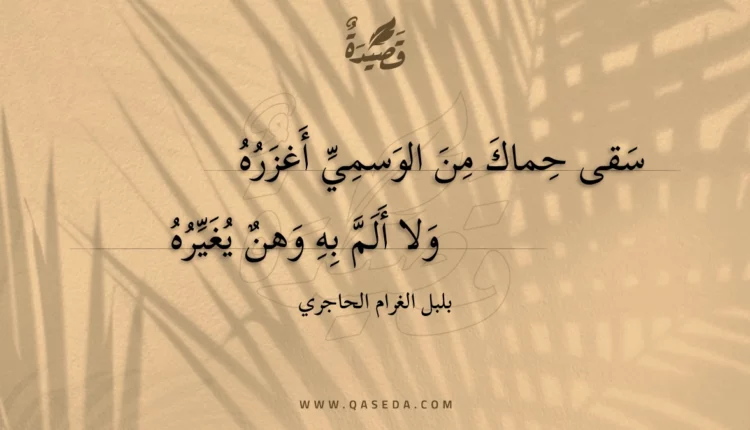 قَصِيدَةٌ
سَقى حِماكَ مِنَ الوَسمِيِّ أَغزَرُهُ
وَلا أَلَمَّ بِهِ وَهنٌ يُغَيِّرُهُ
بلبل الغرام الحاجري
WWW.QASEDA.COM